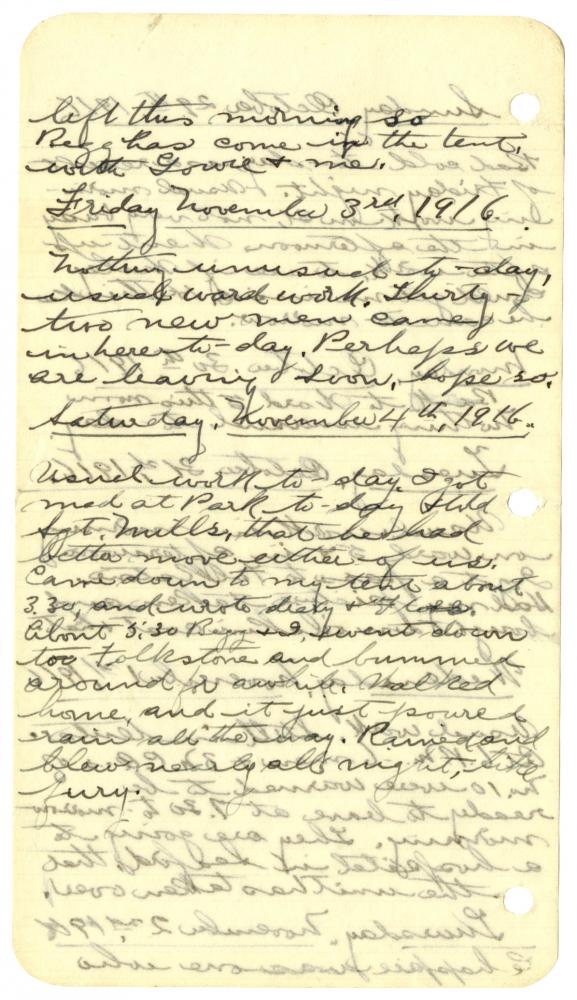 left this morning so
Begg has come in the tent,
with Gowie & me.
Friday November 3rd, 1916.
Nothing unusual to-day,
usual ward work. Thirty-
two new men came
in here to-day. Perhaps we
are leaving soon, hope so.
Saturday, November 4th, 1916.
Usual work to-day. I got
mad at Park to-day & told
Sgt. Mills, that he had
better move either of us.
Came down to my tent about
3.30, and wrote diary &
About 5:30 Begg & I, went down
too Folkstone and bummed
around for awhile. Walked
home, and it just poured
rain all the way. Rained and
blew nearly all night, like
fury.